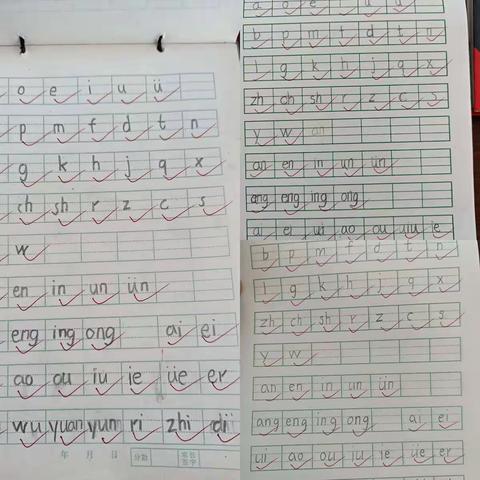 o e i u ü
p m f d t n
g k h j q x
ch sh r z c s
w
en in un ün
eng ing ong ai ei
ao ou iu ie üe er
wu yuan yun ri zhi
年 月 日 分数 家长签字
a o e i u ü
b p m f d t n
l g k h j q x
zh ch sh r z c s
y w an
an en in un ün
ang eng ing ong
ai ei ui ao ou iu ie
b p m f d t n
l g k h j q x
zh ch sh r z c s
y w
an en in un ün
ang eng ing ong ai ei
ui ao ou iu ie üe er